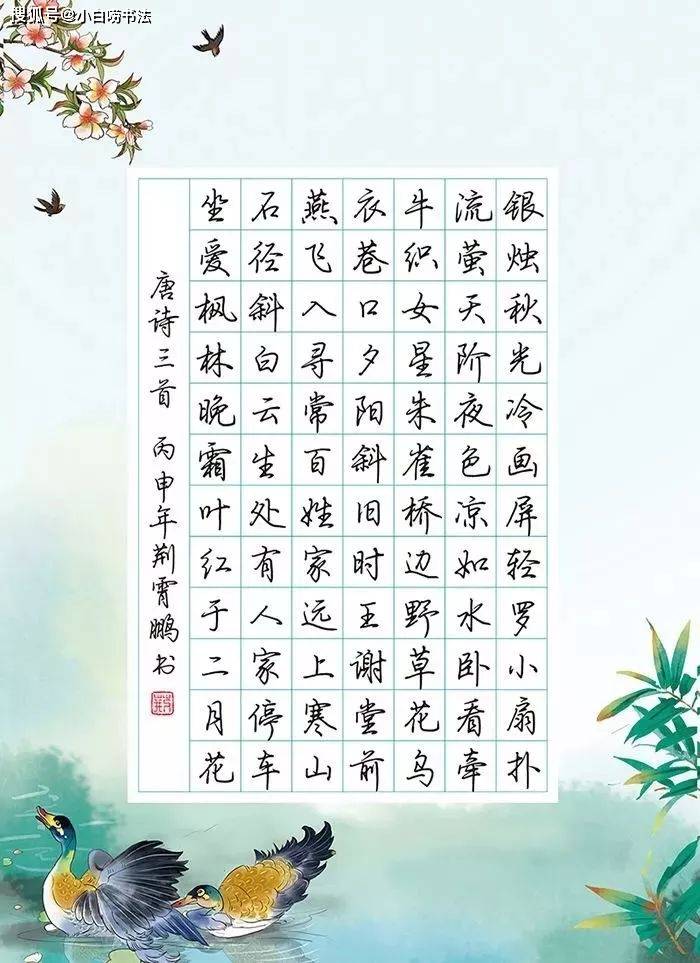 搜狐号@小白唠书法
银烛秋光冷画屏轻罗小扇扑
流萤天阶夜色凉如水卧看牵
牛织女星朱雀桥边野草花乌
衣巷口夕阳斜旧时王谢堂前
燕飞入寻常百姓家远上寒山
石径斜白云生处有人家停车
坐爱枫林晚霜叶红于二月花
唐诗三首 丙申年荆霄鹏书